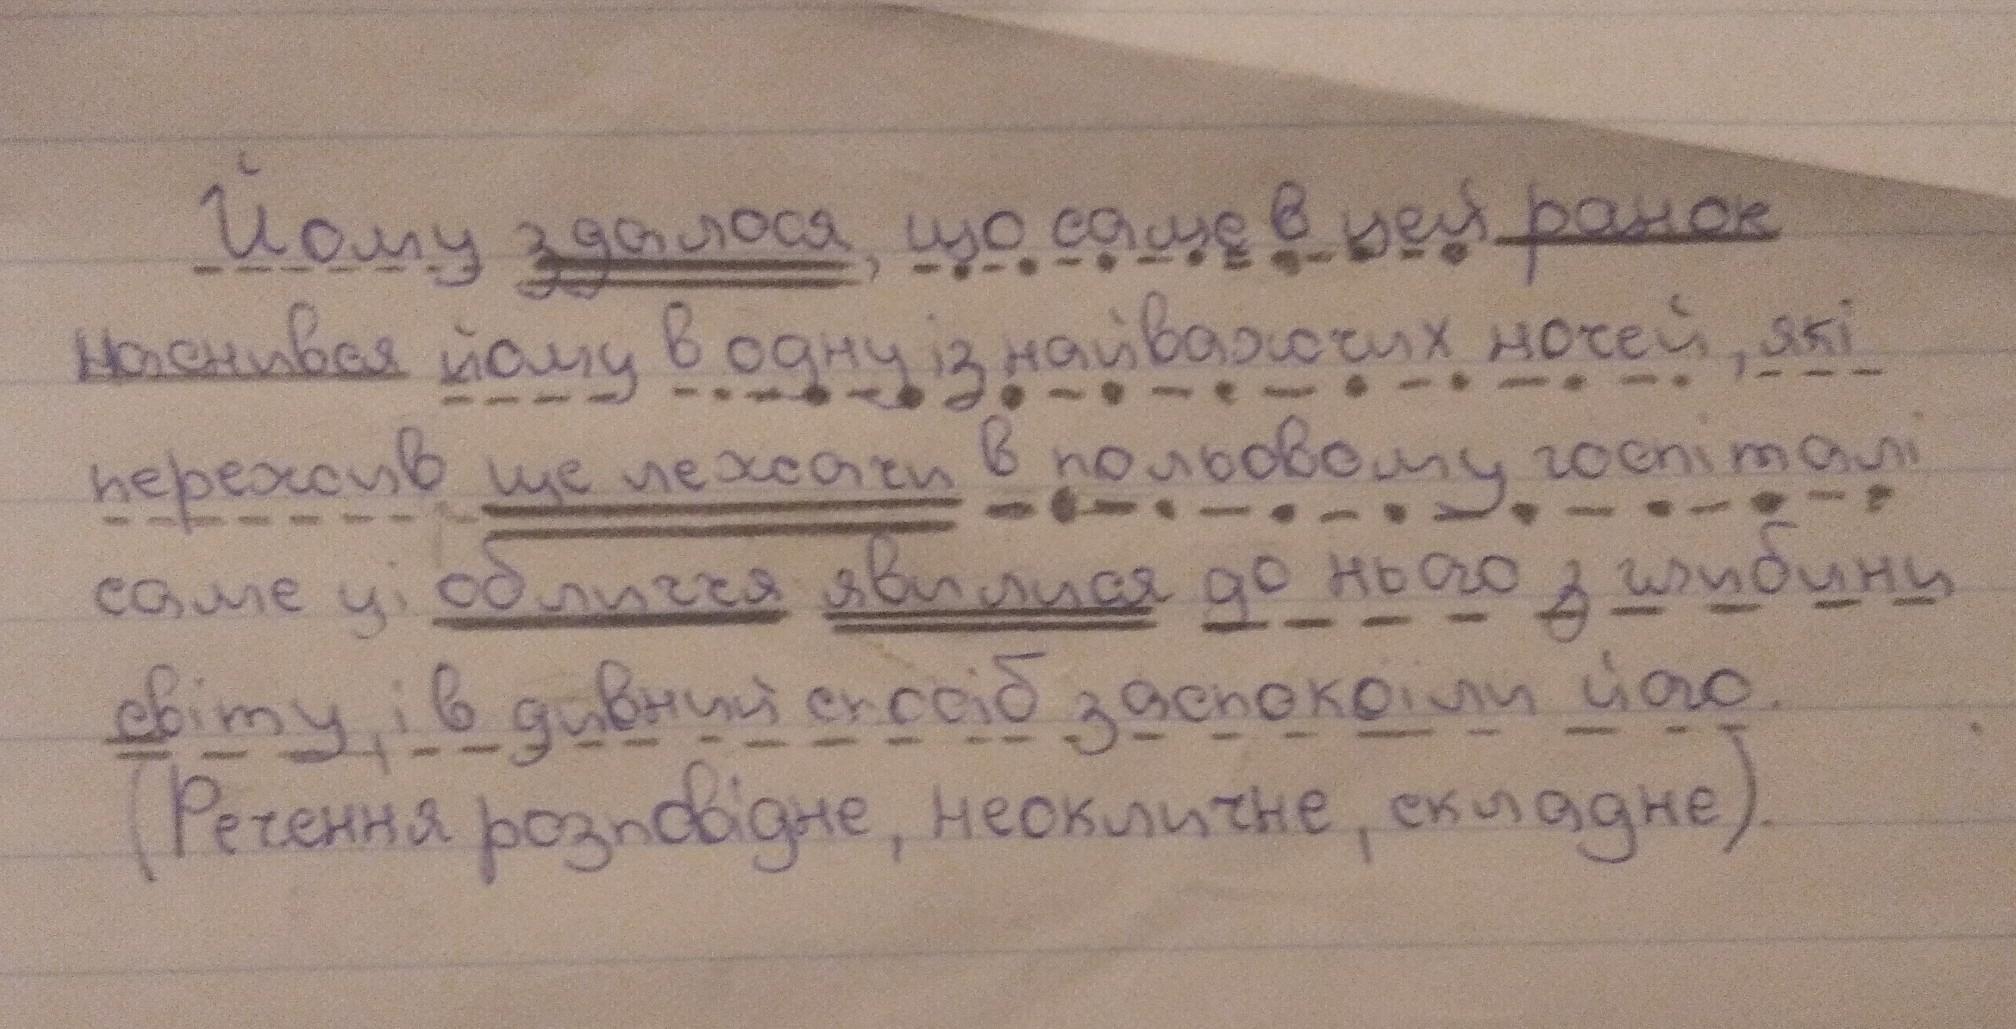 Йому здалося, що саме в цей ранок
наснився йому в одну із найважчих ночей, які
пережив ще лежачи в польовому госпіталі
саме ці обличчя явилися до нього з глибини
світу, і в дивний спосіб заспокоїли його.
(Речення розповідне, неокличне, складне).